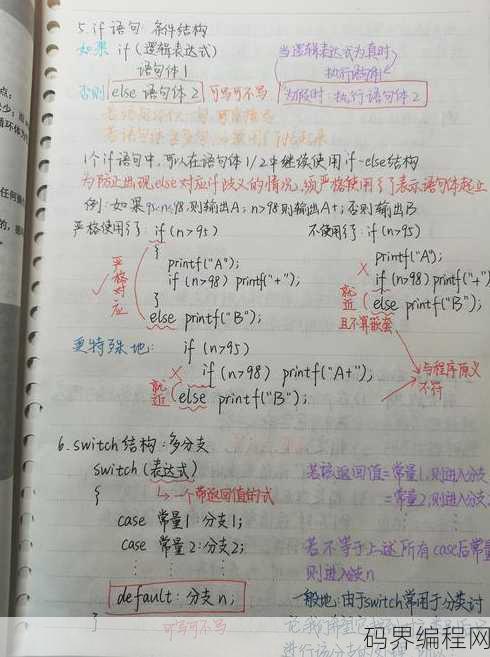 5. if 语句 条件结构
如果 if (逻辑表达式)
语句体1
否则 else 语句体2 可写可不写
当逻辑表达式为真时
执行语句体1
为假时: 执行语句体2
1个if语句中, 可以在语句体1/2中继续使用if-else结构
为防止出现else对应if歧义的情况, 须严格使用{}表示语句体起止
例: 如果95<n≤98, 则输出A; n>98则输出A+; 否则输出B
严格使用{}: if (n>95)
{
printf("A");
if (n>98) printf("+");
}
else printf("B");
严格对应
不使用{}: if (n>95)
printf("A");
if (n>98) printf("+")
else printf("B");
就近
且不算嵌套
更特殊地: if (n>95)
if (n>98) printf("A+");
else printf("B");
就近
与程序原义
不符
6. switch 结构: 多分支
switch (表达式)
一个带返回值的式
{
case 常量1: 分支1;
case 常量2: 分支2;
default: 分支n;
}
可写可不写
若该返回值=常量1, 则进入分支
=常量2, 则进入分支
若不等于上述所有case后常量
则进入分支n
一般地: 由于switch常用于分类讨
码界编程网